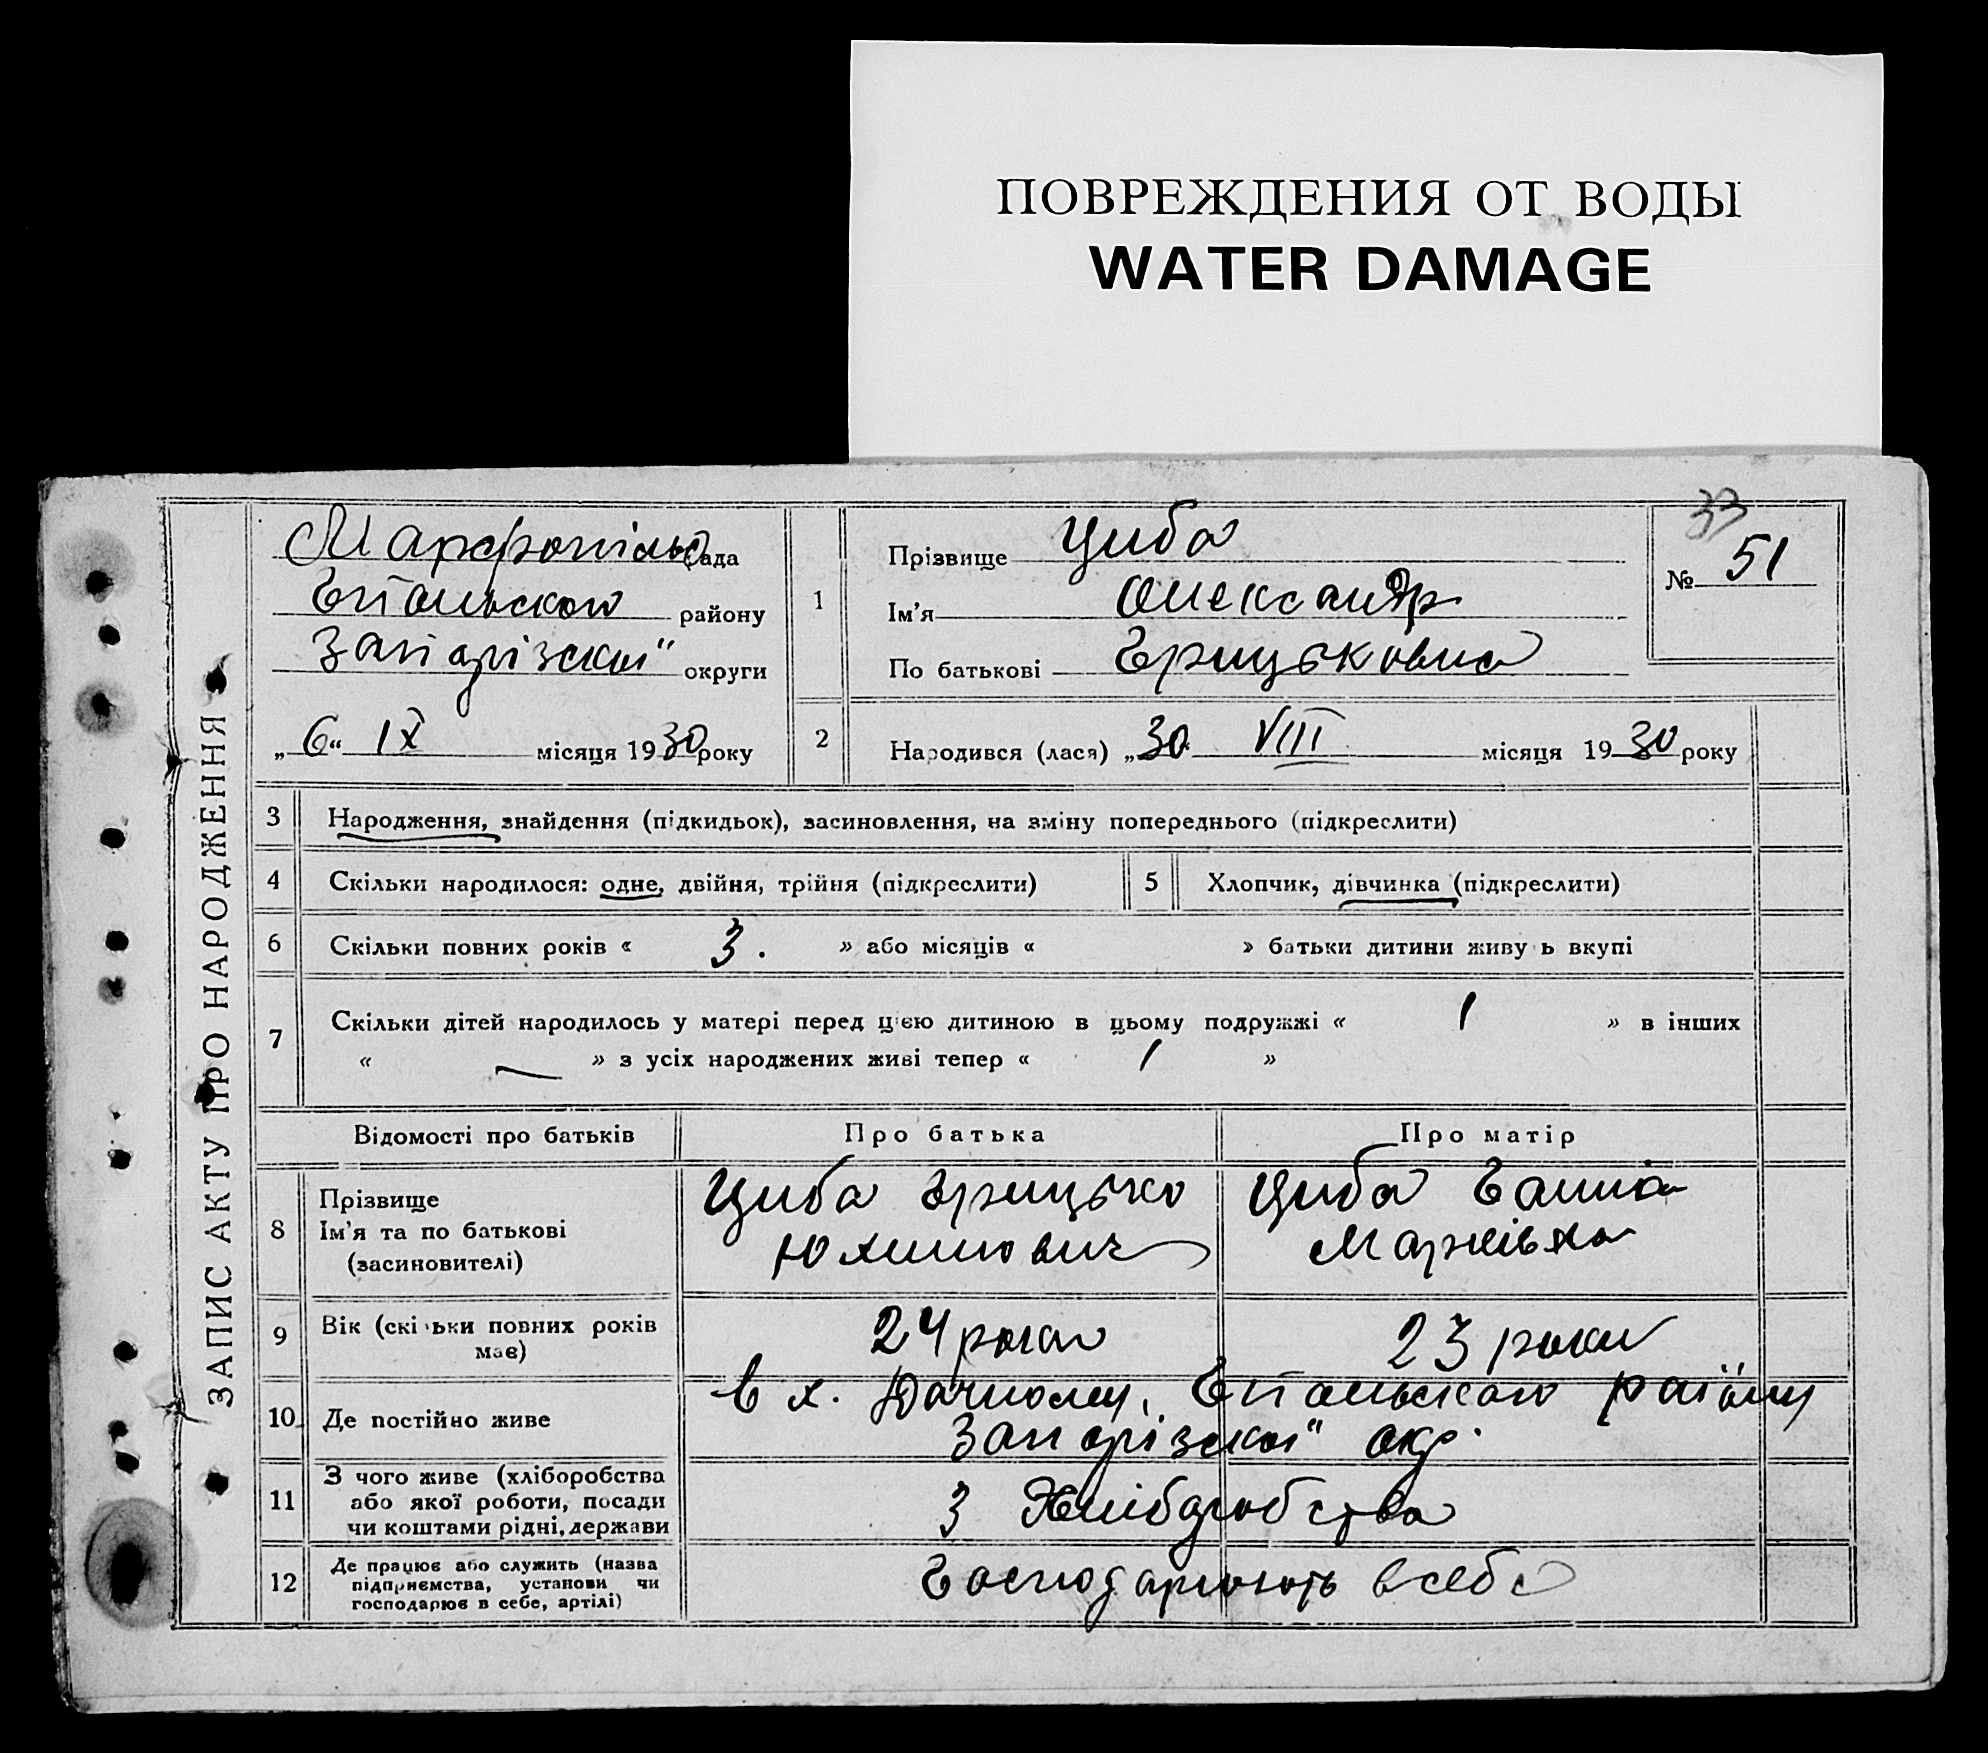 ПОВРЕЖДЕНИЯ ОТ ВОДЫ
WATER DAMAGE
ЗАПИС АКТУ ПРО НАРОДЖЕННЯ
33
№ 51
Марфопільс рада
району
Запорізької округи
„6“ IX місяця 1930 року
1
Прізвище Циба
Ім'я Олександр
По батькові Грицьковна
2 Народився (лася) „30 VIII місяця 1930 року
3 Народження, знайдення (підкидьок), засиновлення, на зміну попереднього (підкреслити)
4 Скільки народилося: одне, двійня, трійня (підкреслити)
5 Хлопчик, дівчинка (підкреслити)
6 Скільки повних років « 3. » або місяців « » батьки дитини живу ь вкупі
7 Скільки дітей народилось у матері перед цією дитиною в цьому подружжі « 1 » в інших
« — » з усіх народжених живі тепер « 1 »
Відомості про батьків Про батька Про матір
8 Прізвище
Ім'я та по батькові
(засиновителі)
Циба Грицько
Юхимович
Циба Ганна
Марківна
9 Вік (скільки повних років
має)
24 роки 23 роки
10 Де постійно живе
в х. Дачному, району
Запорізької окр.
11 З чого живе (хліборобства
або якої роботи, посади
чи коштами рідні, держави
З Хліборобства
12 Де працює або служить (назва
підприємства, установи чи
господарює в себе, артілі)
Господарюють в себе